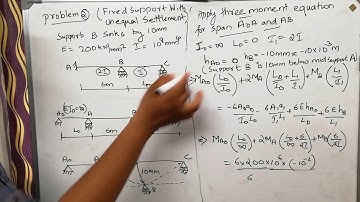 problem② (Fixed Support With
unequal Settlement)
Support B sinks by 10mm
E = 200kN/mm² I = 10⁸mm⁴
A B C
2I I
6m
A₀ A B C
A₀ A C
10mm
B
Apply three moment equation
for span A₀A and AB
I₀=∞ L₀=0 I₁=2I
hA₀=0 hB=-10mm=-10×10⁻³m
(Support B is 10mm below mid support A)
⇒ MA₀(L₀/I₀)+2MA(L₀/I₀+L₁/I₁)+MB(L₁/I₁)
=-6A₀x̄₀/L₀I₀-6A₁x̄₁/L₁I₁+6EhA₀/L₀+6EhB/L₁
⇒ MA₀(L₀/∞)+2MA(L₀/∞+6/2I)+MB(6/2I)
=6×200×10⁶×(-10⁻²)
6